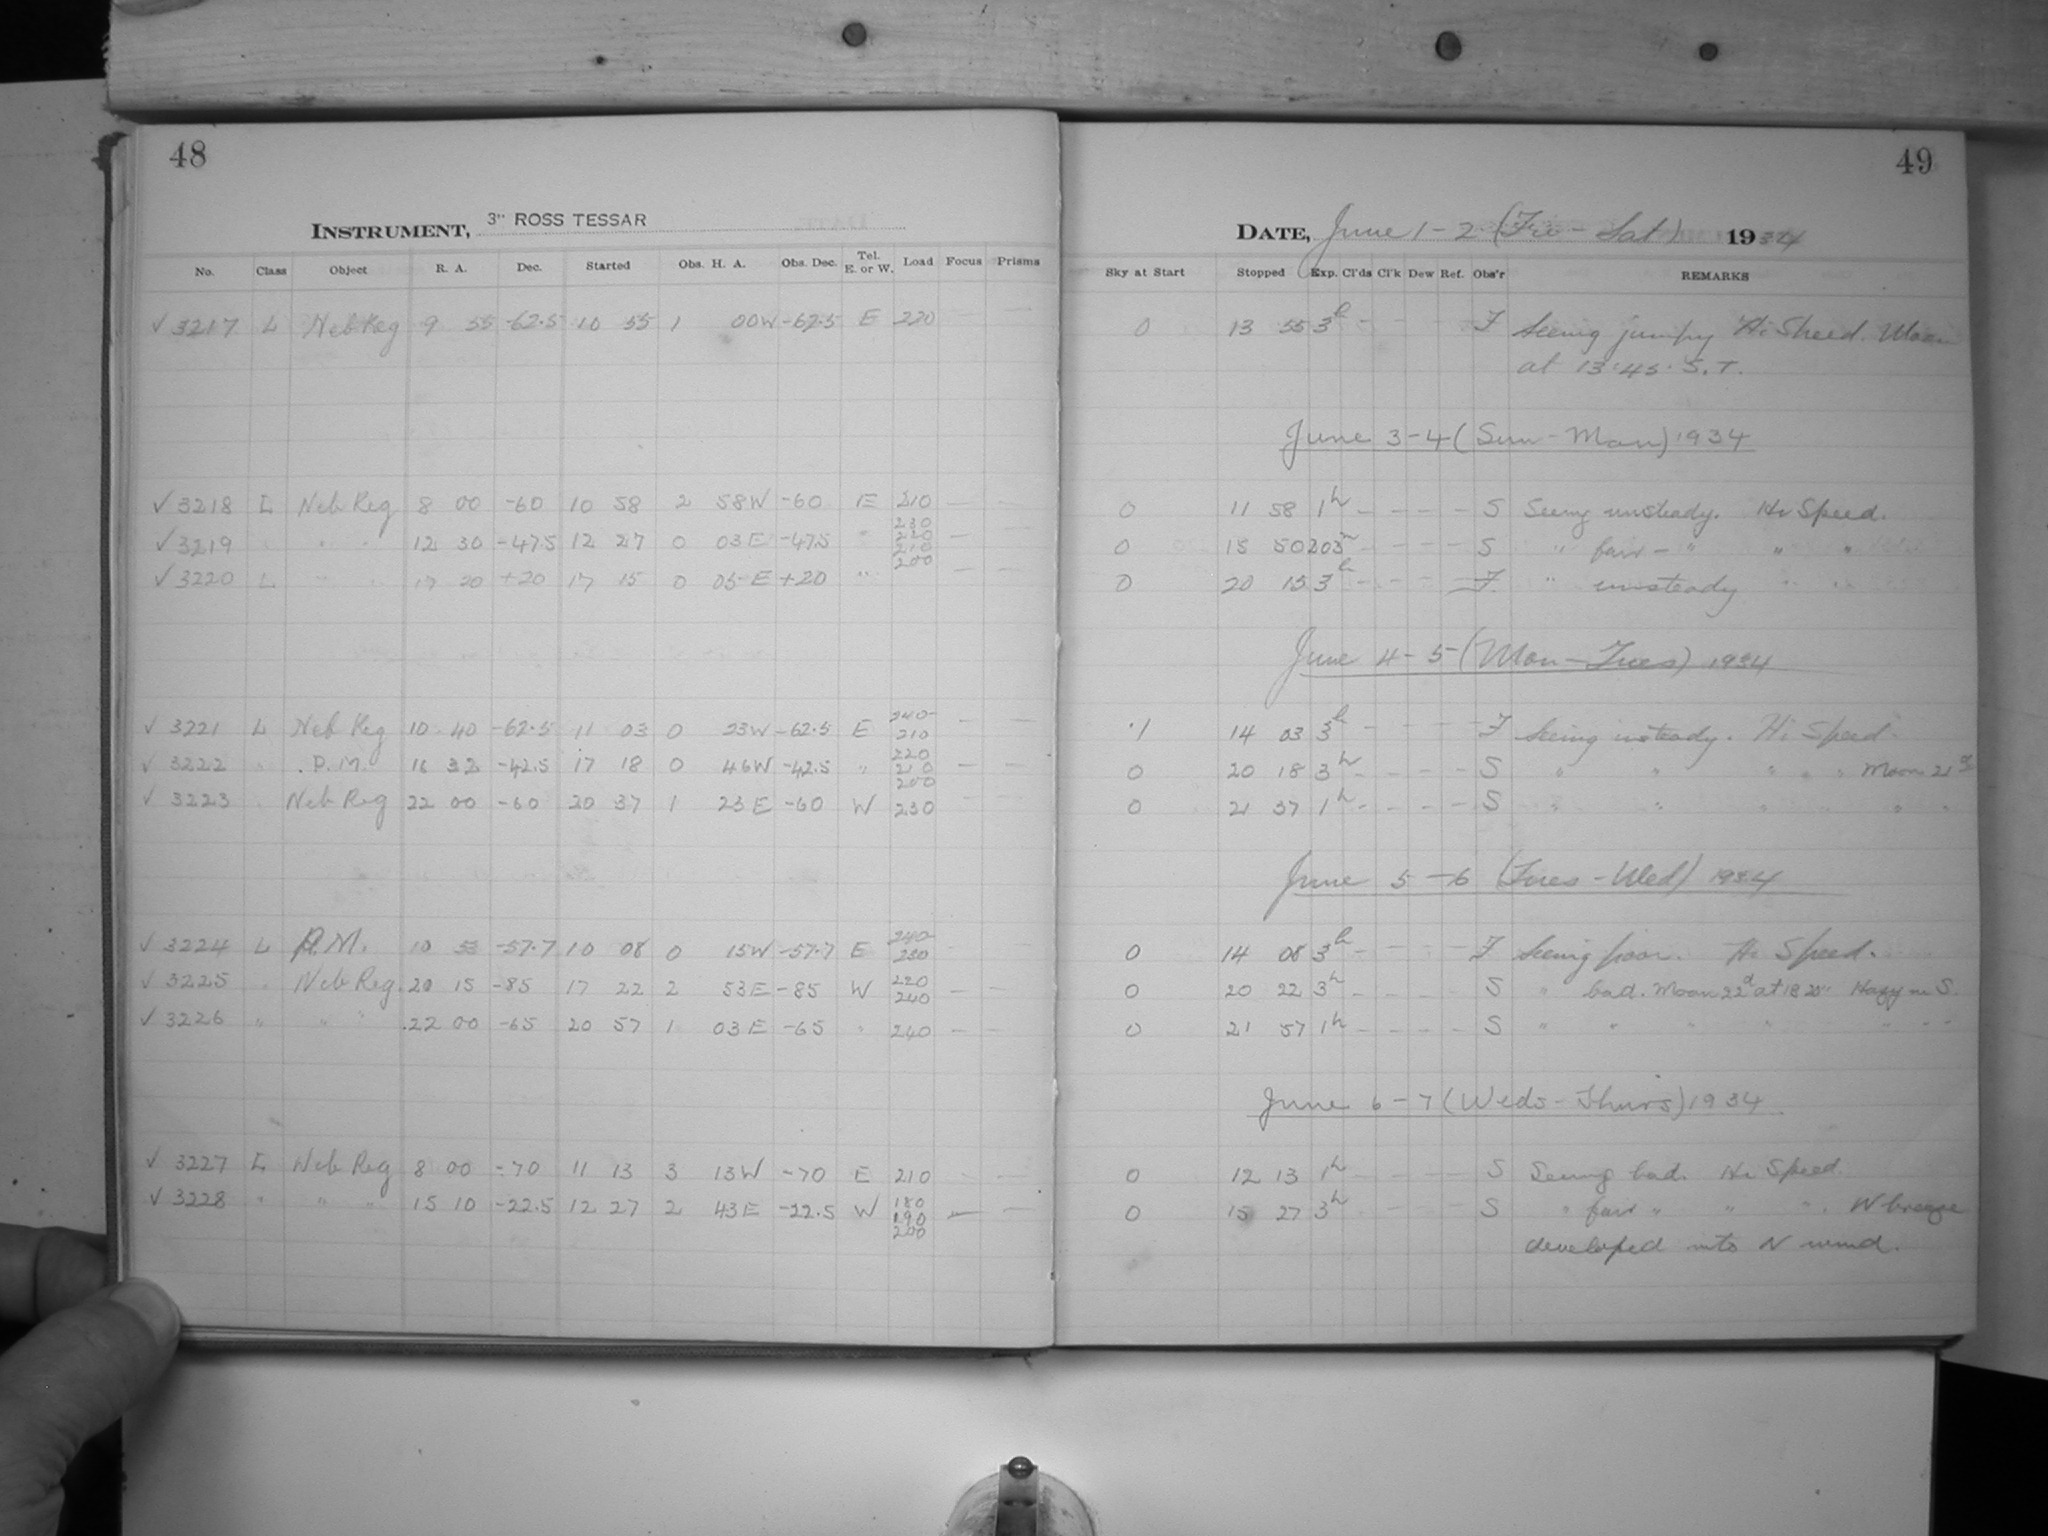 48
INSTRUMENT, 3" ROSS TESSAR
No. Class Object R. A. Dec. Started Obs. H. A. Obs. Dec. Tel. E. or W. Load Focus Prisms
✓ 3217 L Neb Reg 9 55 -62.5 10 55 1 00W -62.5 E 220 —
✓ 3218 L Neb Reg 8 00 -60 10 58 2 58W -60 E 210 — —
✓ 3219 " " " 12 30 -47.5 12 27 0 03E -47.5 " 230 220 210 —
✓ 3220 L " " 17 20 +20 17 15 0 05 E +20 " 200 — —
✓ 3221 L Neb Reg 10 40 -62.5 11 03 0 23W -62.5 E 240 210 — —
✓ 3222 " P.M. 16 32 -42.5 17 18 0 46W -42.5 " 220 210 200 — —
✓ 3223 " Neb Reg 22 00 -60 20 37 1 23 E -60 W 230 — —
✓ 3224 L P.M. 10 53 -57.7 10 08 0 15W -57.7 E 240 230 — —
✓ 3225 " Neb Reg. 20 15 -85 17 22 2 53E -85 W 220 240 — —
✓ 3226 " " " 22 00 -65 20 57 1 03E -65 " 240 — —
✓ 3227 L Neb Reg 8 00 -70 11 13 3 13W -70 E 210 — —
✓ 3228 " " " 15 10 -22.5 12 27 2 43E -22.5 W 180 190 200 — —
49
DATE, June 1-2 (Fri - Sat) 1934
Sky at Start Stopped Exp. Cl'ds Cl'k Dew Ref. Obs'r REMARKS
0 13 55 3h - - - - F Seeing jumpy Hi Speed. Moon
at 13:45 S.T.
June 3-4 (Sun - Mon) 1934
0 11 58 1h - - - - S Seeing unsteady. Hi Speed.
0 15 50 203m - - - - S " fair - " " "
0 20 15 3h - - - - F " unsteady " "
June 4-5 (Mon-Tues) 1934
.1 14 03 3h - - - - F Seeing unsteady. Hi Speed.
0 20 18 3h - - - - S " " " " " Moon 21d
0 21 37 1h - - - - S " " " " " "
June 5-6 (Tues - Wed) 1934
0 14 08 3h - - - - F Seeing poor. Hi Speed.
0 20 22 3h - - - - S " bad. Moon 22d at 18 20m Hazy in S.
0 21 57 1h - - - - S " " " " " " "
June 6-7 (Weds-Thurs) 1934
0 12 13 1h - - - - S Seeing bad. Hi Speed.
0 15 27 3h - - - - S " fair " " ". W breeze
developed into N wind.